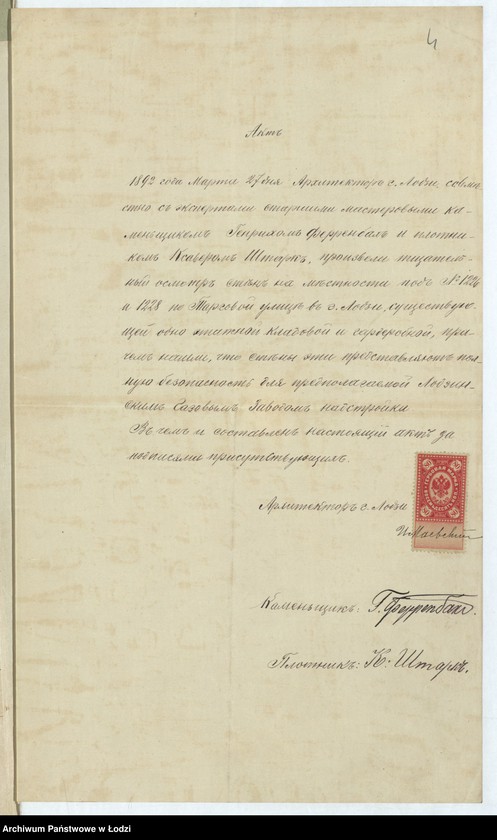 4
Актъ
1892 года Марта 27 дня Архитекторъ г. Лодзи, совмѣ-
стно съ экспертами старшими мастеровыми ка-
меньщикомъ Генрихомъ Ферренбахъ и плотни-
комъ Ксаверомъ Штаркъ, произвели тщатель-
ный осмотръ стѣнъ на мѣстности подъ № 1226
и 1228 по Тарговой улицѣ въ г. Лодзи, существую-
щей одно этажной кладовой и гардеробной, при-
чемъ нашли, что стѣны эти представляютъ пол-
ную безопасность для предполагаемой Лодзин-
скимъ Газовымъ Заводомъ надстройки
Въ чемъ и составленъ настоящій актъ за
подписями присутствующихъ.
Архитекторъ г. Лодзи
Маевскій
Каменьщикъ: Г. Ферренбахъ.
Плотникъ: К. Штаркъ.
Archiwum Państwowe w Łodzi